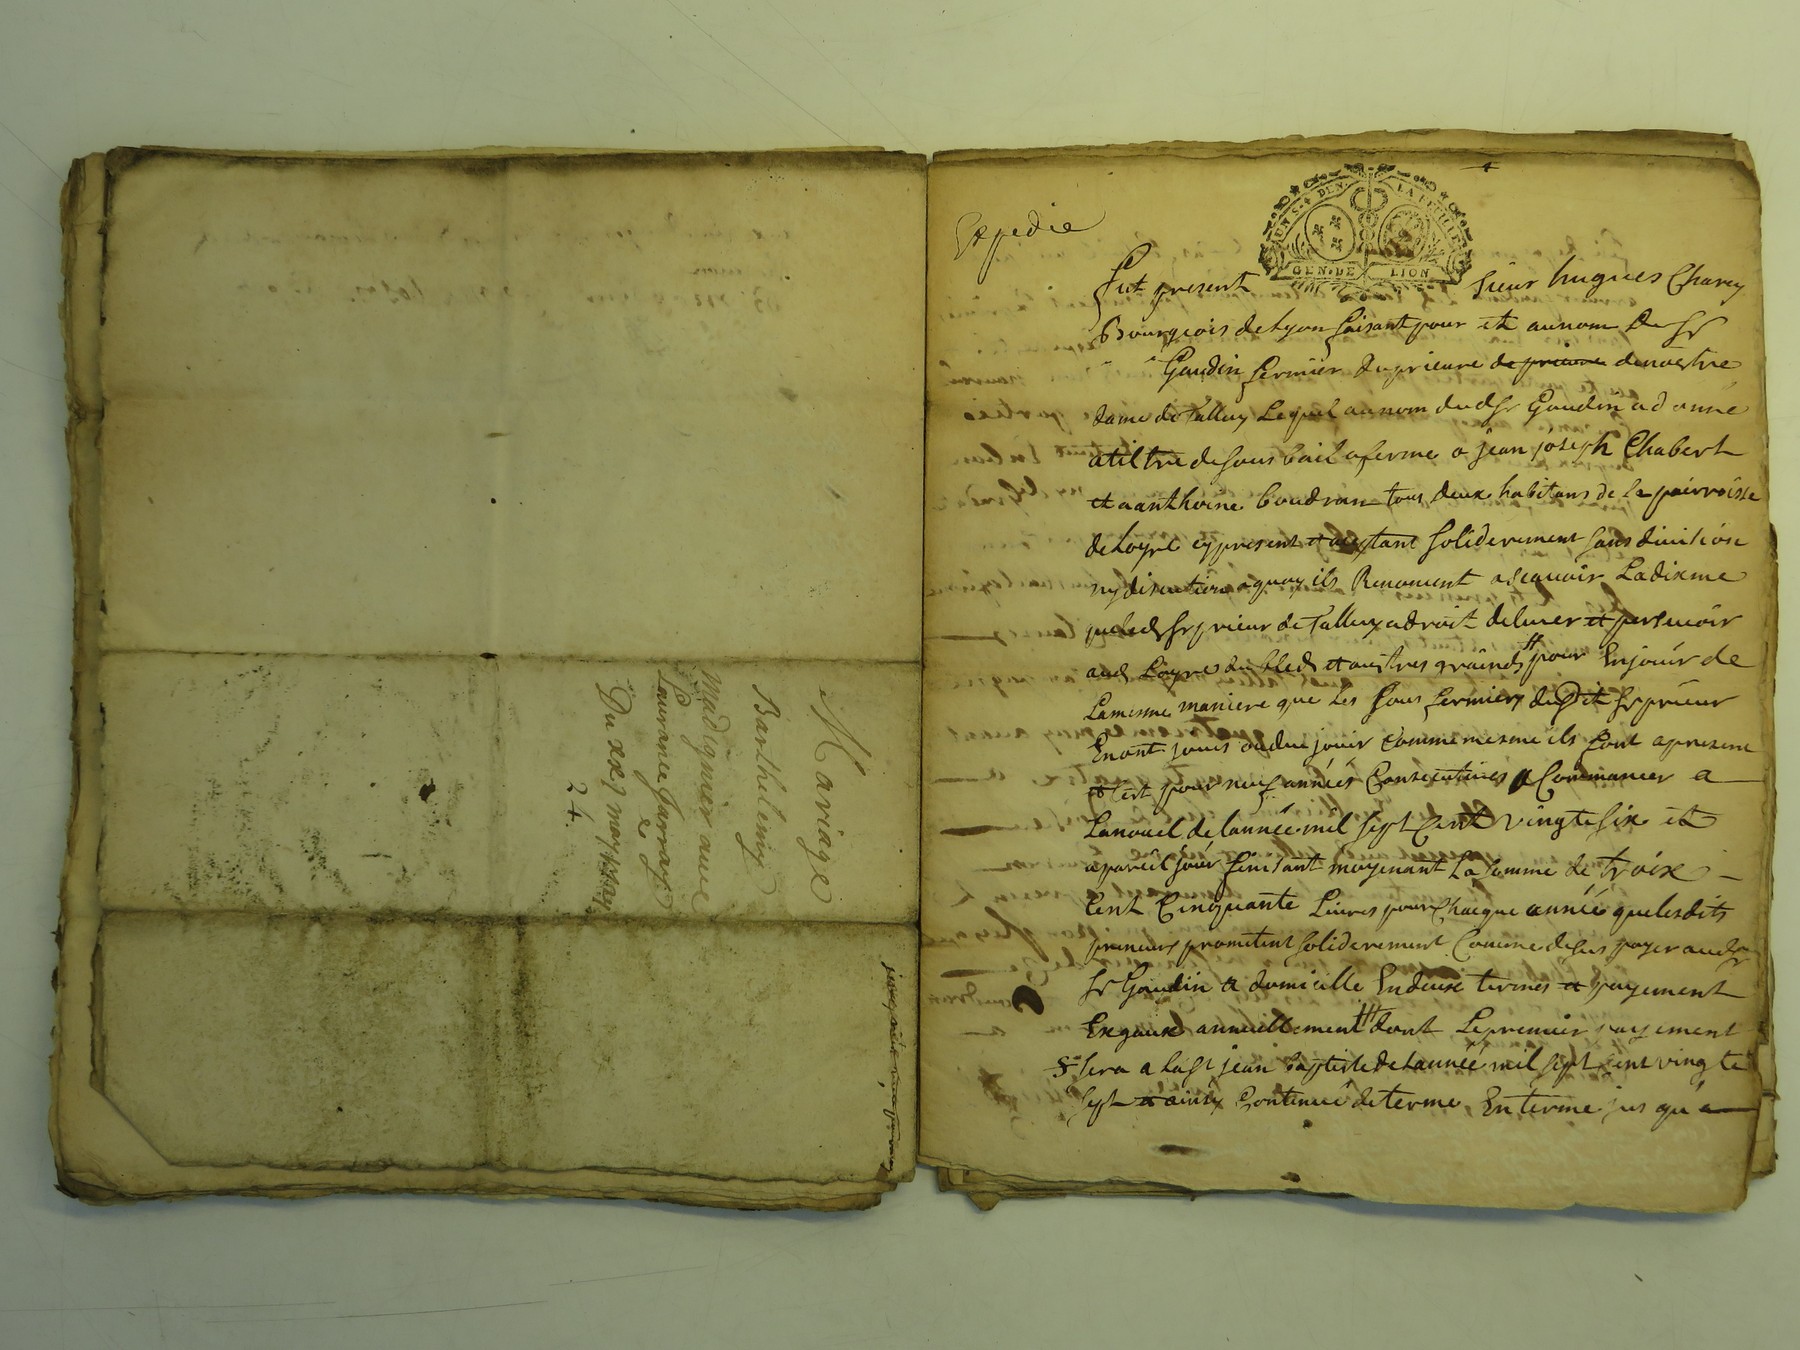 Mariage
Barthelemy
Madignier avec
Laurance Jarray
Du xxj may
24.
Expedie
GEN · DE LION
Fut present Sieur hugues Charey
Bourgeois de Lyon faisant pour et au nom du Sr
Gaudin fermier du prieure de prieure de nostre
dame de Talluy Lequel au nom dudt Sr Gaudin a donné
a tiltre de sous bail a ferme a jean joseph Chabert
et a anthoine boudran tous deux habitans de la pairroisse
de Loyre cy present et acceptant soliderement sans division
ny discution a quoy ils Renoncent a scavoir La dixme
que led Sr prieur de Talluy a droit de lever et persevoir
aud Loyre du bled et austres grains pour En jouir de
La mesme maniere que Les sous fermiers dudit Sr prieur
En ont joui ou due jouir comme mesme ils font a present
et c'est pour neuf années Consecutives a Commancer a
La nouel de l'année mil sept Cent vingte six et
a pareil jour finisant moyenant La somme de trois
Cent Cinquante Livres pour Chaque année que lesdits
preneurs prometent soliderement Comme desus payer aud
Sr Gaudin a domicille En deux termes et payement
Exgaux annuellement dont Le premier payement
sera a La St jean baptiste de L'année mil sept cent vingte
sept et ainsy Continué de terme En terme jus qu'a